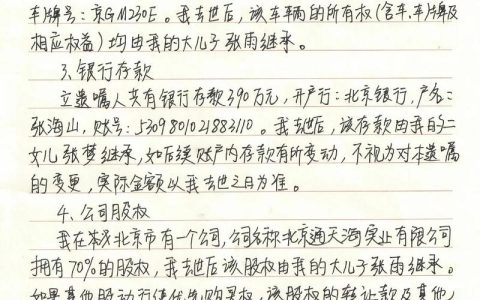 车牌号：京GM230E。我去世后，该车辆的所有权(含车、车牌及
相应权益）均由我的大儿子张雨继承。
3、银行存款
立遗嘱人共有银行存款390万元，开户行：北京银行，户名：
张海山，账号：5309801021883110。我去世后，该存款由我的二
女儿张梦继承，如后续账户内存款有所变动，不视为对本遗嘱
的变更，实际金额以我去世之日为准。
4、公司股权
我在北京市有一个公司，公司名称北京通天海实业有限公司
拥有70%的股权，我去世后该股权由我的大儿子张雨继承。
如果其他股东行使优先购买权，该股权的存让款及其他，